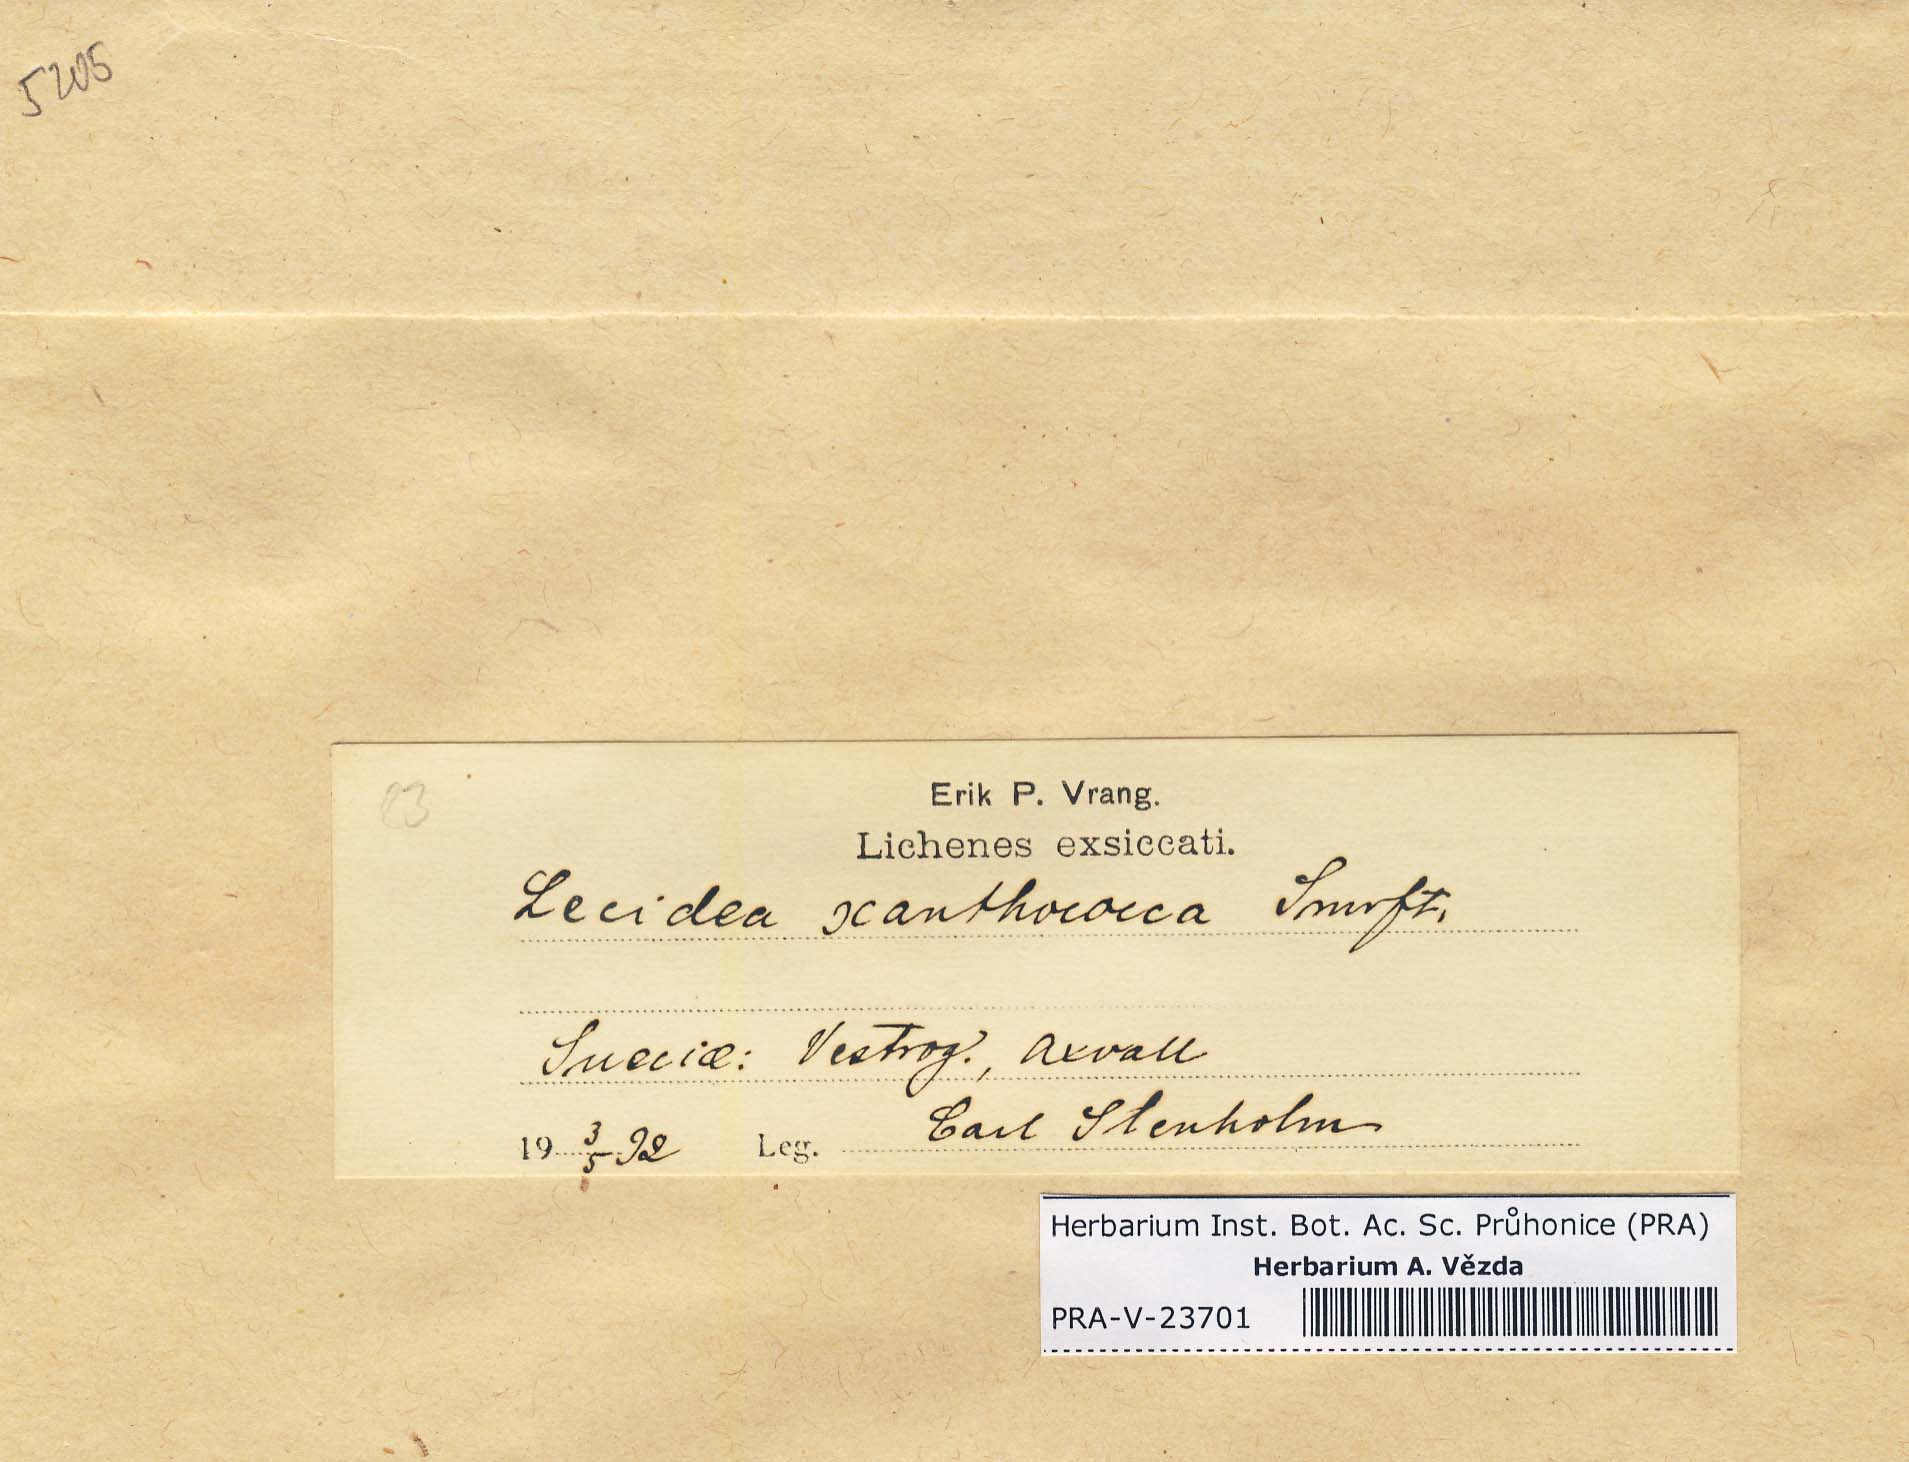 5205
23
Erik P. Vrang.
Lichenes exsiccati.
Lecidea xanthococca Smrft.
Sueciæ: Vestrog., Axvall
19 3/5 32 Leg. Carl Stenholm
Herbarium Inst. Bot. Ac. Sc. Průhonice (PRA)
Herbarium A. Vězda
PRA-V-23701